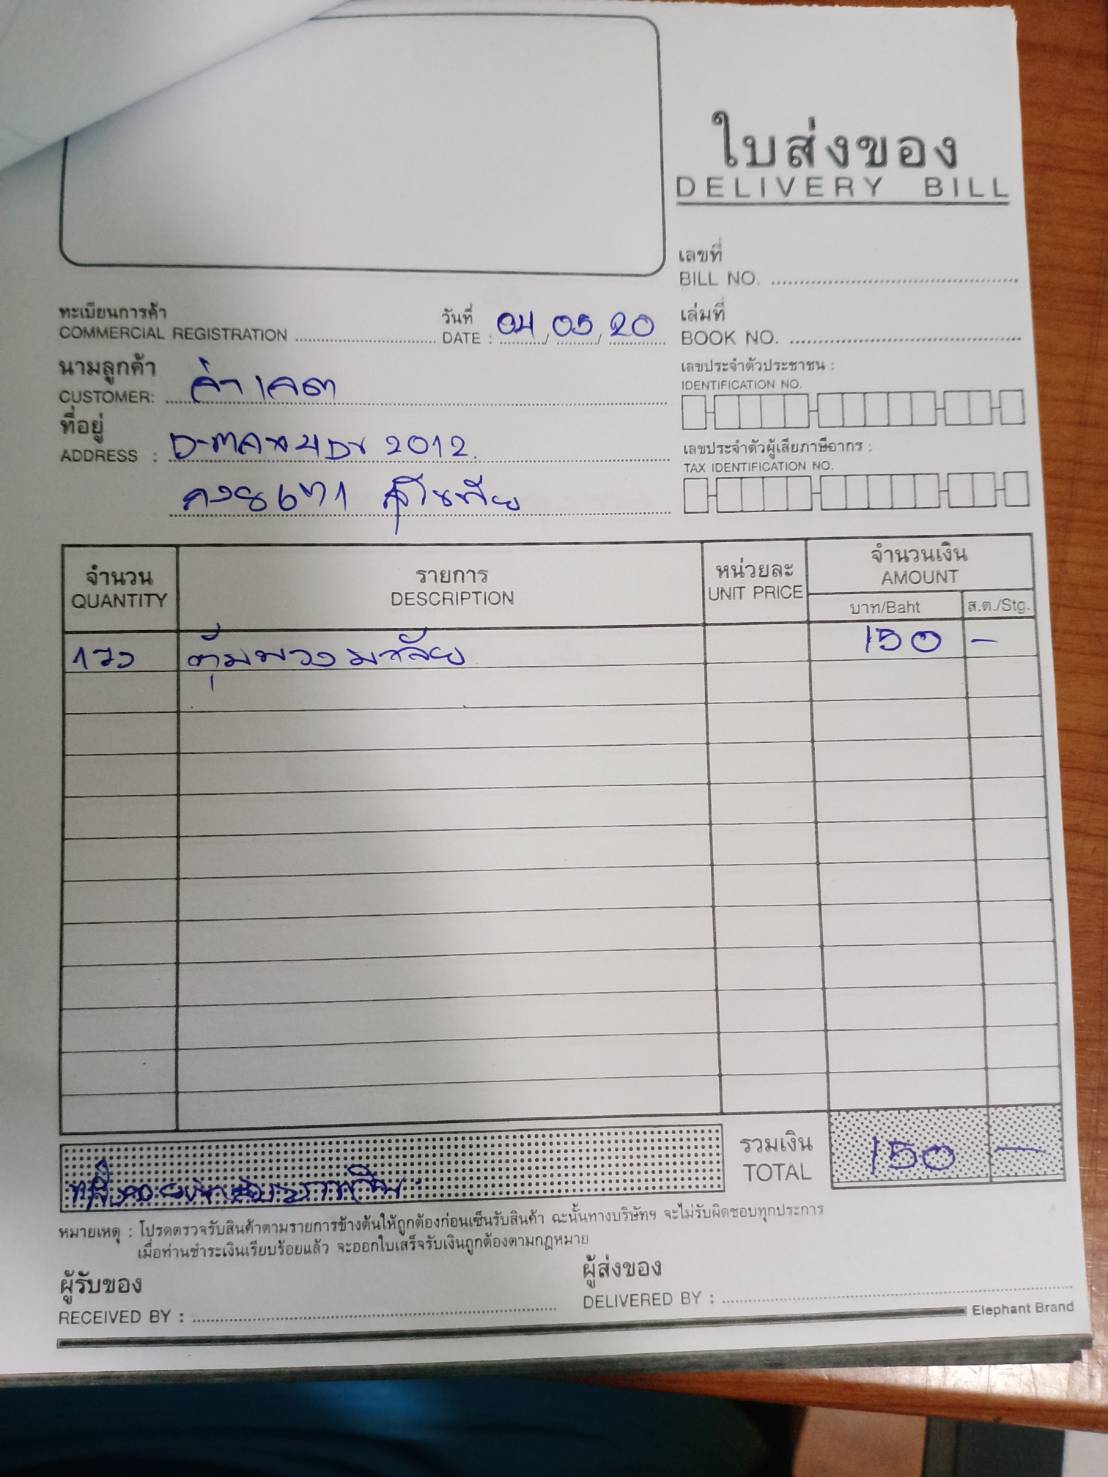 ใบส่งของ
DELIVERY BILL
เลขที่
BILL NO.
ทะเบียนการค้า
COMMERCIAL REGISTRATION
วันที่
DATE : 04/05/20
เล่มที่
BOOK NO.
นามลูกค้า
CUSTOMER:
เลขประจำตัวประชาชน :
IDENTIFICATION NO.
ที่อยู่
ADDRESS : 2012
เลขประจำตัวผู้เสียภาษีอากร :
TAX IDENTIFICATION NO.
จำนวน
QUANTITY
รายการ
DESCRIPTION
หน่วยละ
UNIT PRICE
จำนวนเงิน
AMOUNT
บาท/Baht ส.ต./Stg.
ตุ้มพวงมาลัย 150 -
รวมเงิน
TOTAL
150 -
หมายเหตุ : โปรดตรวจรับสินค้าตามรายการข้างต้นให้ถูกต้องก่อนเซ็นรับสินค้า ฉะนั้นทางบริษัทฯ จะไม่รับผิดชอบทุกประการ
เมื่อท่านชำระเงินเรียบร้อยแล้ว จะออกใบเสร็จรับเงินถูกต้องตามกฎหมาย
ผู้รับของ
RECEIVED BY :
ผู้ส่งของ
DELIVERED BY :
Elephant Brand